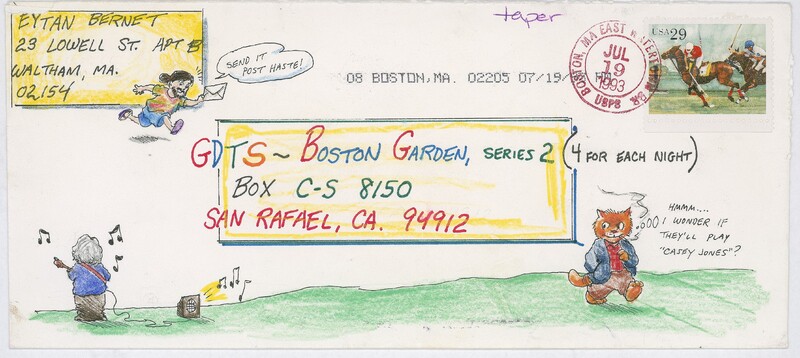 EYTAN BERNET
23 LOWELL ST. APT B
WALTHAM, MA.
02154
SEND IT
POST HASTE!
taper
08 BOSTON, MA. 02205 07/19/
BOSTON, MA EAST
JUL
19
1993
USPS
USA 29
GDTS ~ BOSTON GARDEN, SERIES 2 (4 FOR EACH NIGHT)
BOX C-S 8150
SAN RAFAEL, CA. 94912
HMMM....
I WONDER IF
THEY'LL PLAY
"CASEY JONES"?